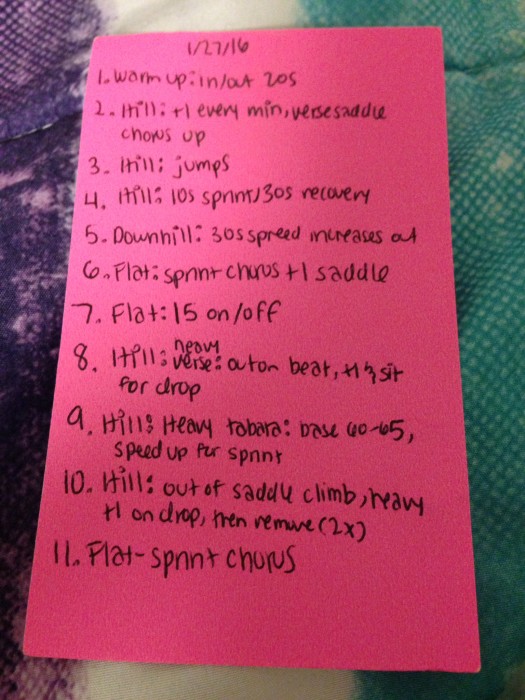 1/27/16
1. Warm up: in/out 20s
2. Hill: +1 every min, verse saddle
chorus up
3. Hill: jumps
4. Hill: 10s sprint/30s recovery
5. Downhill: 30s spreed increases out
6. Flat: sprint chorus +1 saddle
7. Flat: 15 on/off
8. Hill: heavy verse: out on beat, +1 & sit
for drop
9. Hill: Heavy tabara: base 60-65,
speed up for sprint
10. Hill: out of saddle climb, heavy
+1 on drop, then remove (2x)
11. Flat - sprint chorus